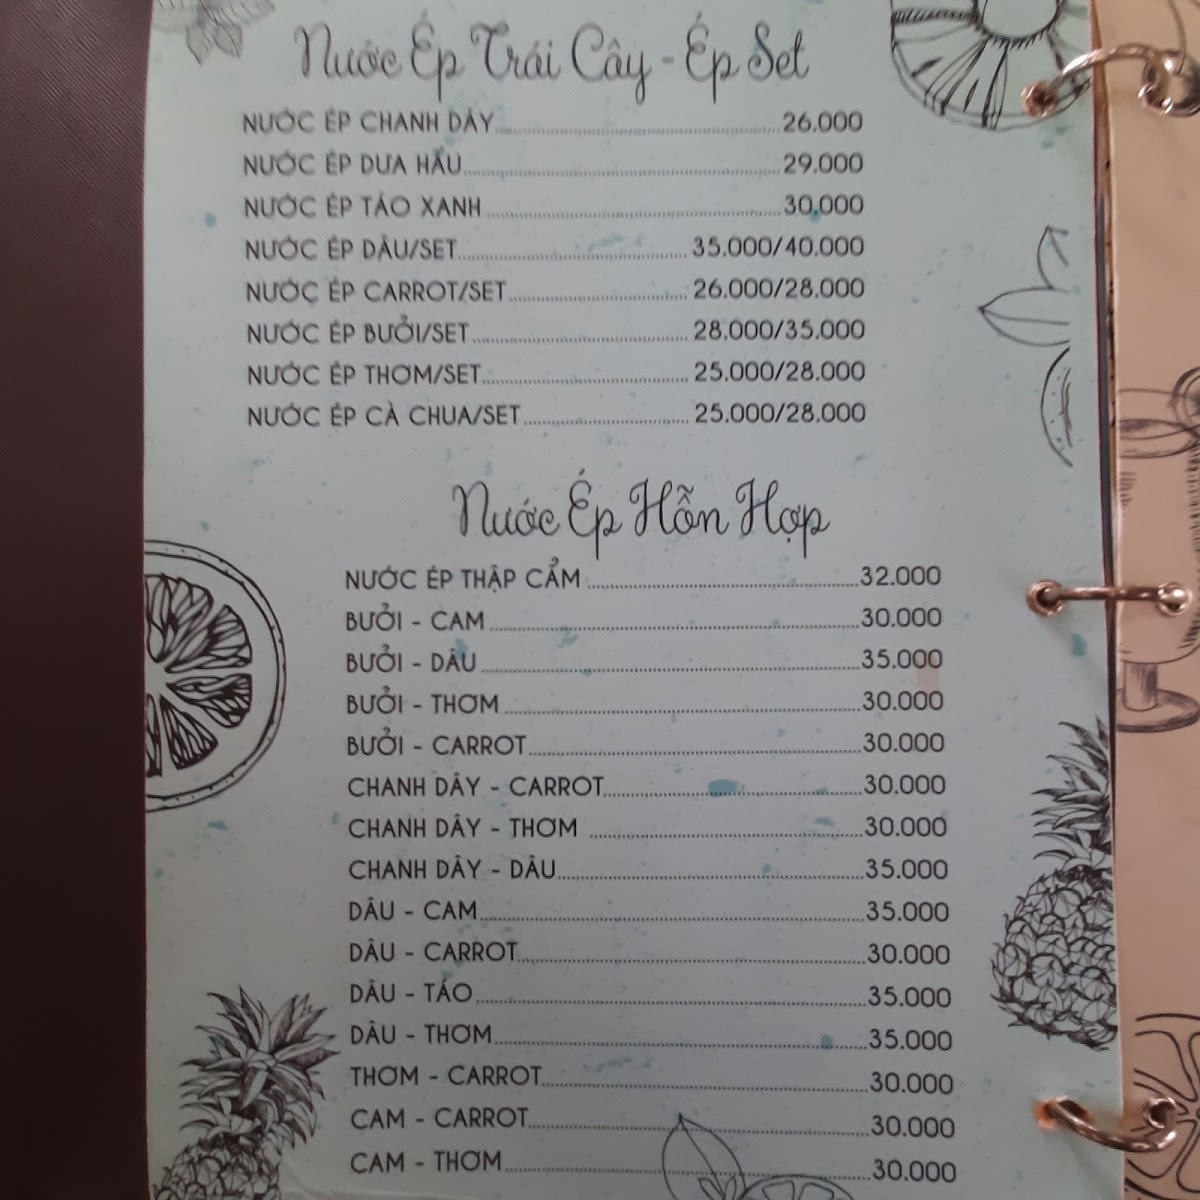 Nước Ép Trái Cây - Ép Set
NƯỚC ÉP CHANH DÂY 26.000
NƯỚC ÉP DƯA HẤU 29.000
NƯỚC ÉP TÁO XANH 30.000
NƯỚC ÉP DÂU/SET 35.000/40.000
NƯỚC ÉP CARROT/SET 26.000/28.000
NƯỚC ÉP BƯỞI/SET 28.000/35.000
NƯỚC ÉP THƠM/SET 25.000/28.000
NƯỚC ÉP CÀ CHUA/SET 25.000/28.000
Nước Ép Hỗn Hợp
NƯỚC ÉP THẬP CẨM 32.000
BƯỞI - CAM 30.000
BƯỞI - DÂU 35.000
BƯỞI - THƠM 30.000
BƯỞI - CARROT 30.000
CHANH DÂY - CARROT 30.000
CHANH DÂY - THƠM 30.000
CHANH DÂY - DÂU 35.000
DÂU - CAM 35.000
DÂU - CARROT 30.000
DÂU - TÁO 35.000
DÂU - THƠM 35.000
THƠM - CARROT 30.000
CAM - CARROT 30.000
CAM - THƠM 30.000